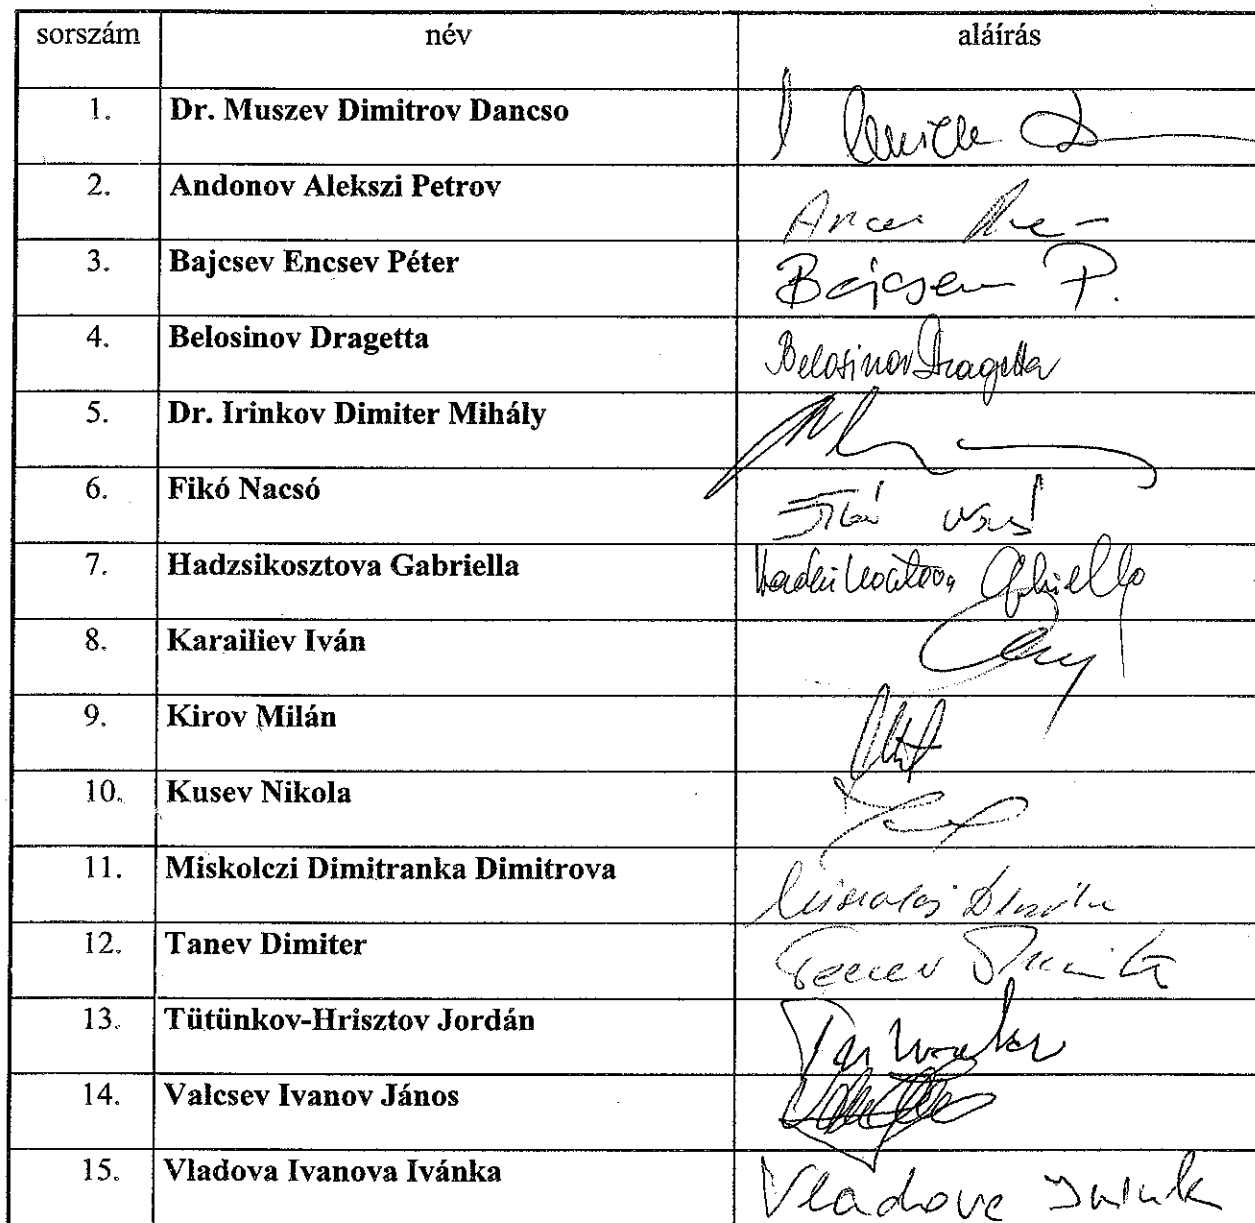 sorszám név aláírás
1. Dr. Muszev Dimitrov Dancso
2. Andonov Alekszi Petrov
3. Bajcsev Encsev Péter Bajcsev P.
4. Belosinov Dragetta Belosinov Dragetta
5. Dr. Irinkov Dimiter Mihály
6. Fikó Nacsó Fikó Nacsó
7. Hadzsikosztova Gabriella Hadzsikosztova Gabriella
8. Karailiev Iván
9. Kirov Milán
10. Kusev Nikola
11. Miskolczi Dimitranka Dimitrova
12. Tanev Dimiter Tanev
13. Tütünkov-Hrisztov Jordán
14. Valcsev Ivanov János
15. Vladova Ivanova Ivánka Vladova Ivánka